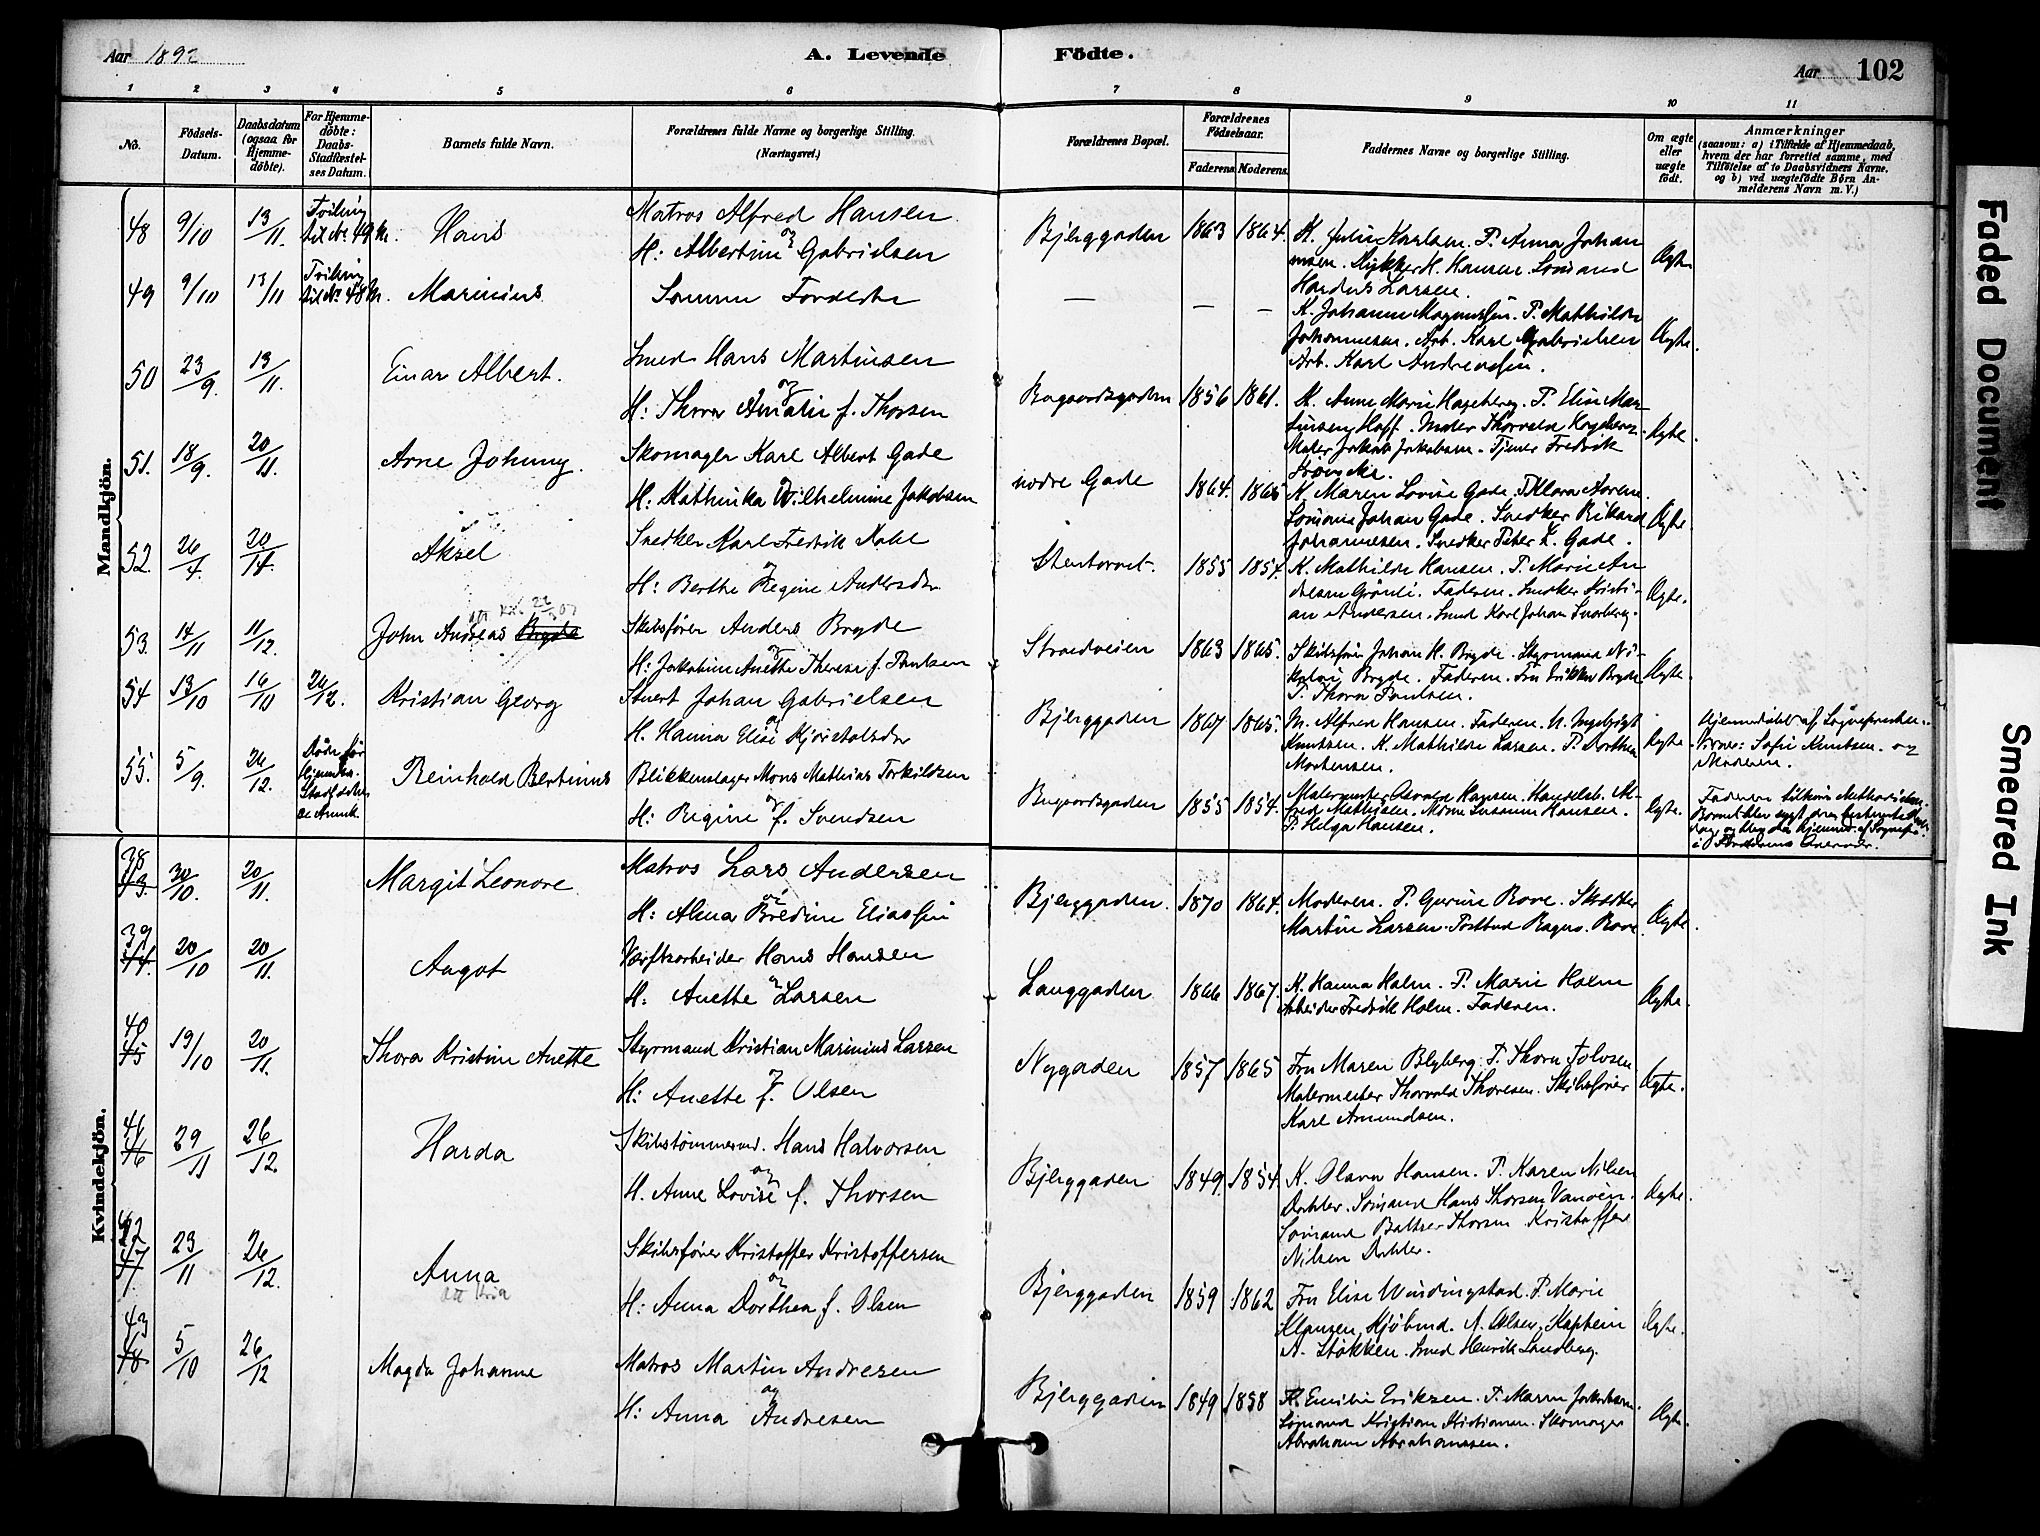 Aar 1892
A. Levende Födte.
Aar 102
1 2 3 4 5 6 7 8 9 10 11
No.
Födsels-
Datum.
Daabsdatum
(ogsaa for
Hjemme-
döbte).
For Hjemme-
döbte:
Daabs-
Stadfæstel-
ses Datum.
Barnets fulde Navn.
Forældrenes fulde Navne og borgerlige Stilling.
(Næringsvei.)
Forældrenes Bopæl.
Forældrenes
Födselsaar.
Faderens Moderens
Faddernes Navne og borgerlige Stilling.
Om ægte
eller
uægte
født.
Anmærkninger
(saasom: a) i Tilfælde af Hjemmedaab,
hvem der har forrettet samme, med
Tilföielse af to Daabsvidners Navne,
og b) ved uægtefödte Börn An-
melderens Navn m. V.)
Mandkjön.
48 9/10 13/11. Tvilling til No 49 Hans Matros Alfred Hansen
og
H: Albertine Gabrielsen Bjerggaden 1863 1864. K. Julie Karlsen. P. Anna Johan
nsen. Dykker H. Hansen Sømand
Larsen. Ægte
49 9/10 13/11 Tvilling til No 48 Marinius Samme Forældre — — — K. Johanne Magnussen. P. Mathilde
Johannesen. Arb. Karl Gabrielsen
Arb. Karl Andreassen. Ægte.
50 23/9. 13/11. Einar Albert. Smed Hans Martinsen
og
H: Thora Amalie f. Thorsen Bugaardsgaden 1856 1861. K. Anne Marie Hageberg. P. Elise Mar-
tinsen Hoff. Maler Thorvald Hageberg
Maler Jakob Jakobsen. Tjener Fredrik Ægte.
51. 18/9. 20/11. Arne Johnny. Skomager Karl Albert Gade
og
H: Kathinka Wilhelmine Jakobsen nordre Gade 1864. 1865 K. Maren Lovise Gade. P. Klara
Sømand Johan Gade. Snedker Rikard
Johannesen. Snedker Peter K. Gade. Ægte.
52. 26/4. 20/14. Aksel Snedker Karl Fredrik
og
H: Berthe Regine Andersdtr Stentorvet. 1855 1854. K. Mathilde Hansen. P. Marie An
dersen Grönli. Faderen. Snedker Kristi-
an Andersen. Smed Karl Johan Ægte.
53. 14/11 11/12. John Andreas Bryde Skibsfører Anders Bryde
og
H: Jakobine Anette Therese f. Paulsen Strandveien 1863 1865. Skibsfører Johan H. Bryde. Styrmand Ni-
kolai Bryde. Faderen. Fru Bryde
P. Thora Paulsen. Ægte.
54 13/10 16/10 26/12. Kristian Georg Stuert Johan Gabrielsen
og
H. Hanna Elise Bjerggaden 1867 1865. M. Alfred Hansen. Faderen. U. Ingebrigt
Knutsen. K. Mathilde Larsen. P. Dorthea
Mortensen. Ægte. Hjemmedøbt af Sognepresten.
Vidner: Sofie Knutsen. og
Moderen.
55. 5/9. 26/12. Døde før Reinhold Bertinius Blikkenslager Mons Mathias Torkildsen
og
H: Regine f. Svendsen Bugaardsgaden 1855 1854. Malermester Harald Hansen. Handelsb. Al-
fred Mathisen. Madme Susanne Hansen.
P. Helga Hansen. Ægte. Faderen
Kvindekjön.
38 43. 30/10. 20/11. Margit Leonore Matros Lars Andersen
og
H: Alma Bredine Eliassen Bjerggaden. 1870 1864. Moderen. P. Gurine Bove. Skrædder
Martin Larsen. Postbud Bove. Ægte.
39 44. 20/10 20/11. Aagot Værftsarbeider Hans Hansen
og
H: Anette Larsen Langgaden 1866 1867. K. Hanna Holm. P. Marie Holm
Arbeider Fredrik Holm. Faderen. Ægte.
40 45 19/10 20/11. Thora Kristine Anette Styrmand Kristian Marinius Larsen
og
H: Anette f. Olsen Nygaden 1857 1865 Fru Maren Blyberg. P. Thora Tolvsen
Malermester Thorvald Thoresen. Skibsfører
Karl Amundsen. Ægte.
41 46 29/11 26/12. Harda Skibstømmermd. Hans Halvorsen
og
H. Anne Lovise f. Thorsen Bjerggaden 1849. 1854. K. Olava Hansen. P. Karen Nilsen
Dahler. Sømand Hans Thorsen
Sømand Baltser Thorsen Kristoffer
Nilsen Dahler. Ægte.
42 47. 23/11 26/12. Anna Skibsfører Kristoffer Kristoffersen
og
H: Anna Dorthea f. Olsen Bjerggaden 1859 1862 Fru Elise Windingstad. P. Marie
Klausen. Kjøbmd. A. Olsen. Kaptein
A. Stökken. Smed Henrik Sandberg. Ægte.
43 48 5/10 26/12 Magda Johanne Matros Martin Andresen
og
H: Anna Andresen Bjerggaden 1849 1858 K. Emilie Eriksen. P. Maren Jakobsen.
Sømand Kristian Kristiansen. Skomager
Abraham Abrahamsen. Ægte.
Faded Document
Smeared Ink